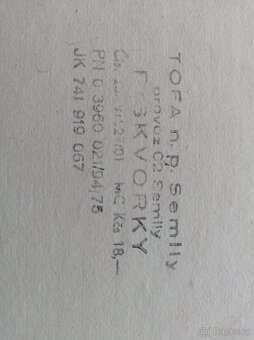 TOFA n.p. Semily
provoz 02 Semily
KVORKY
MC Kčs 18,—
PN 0 3960 021/94/75
JK 741 919 067